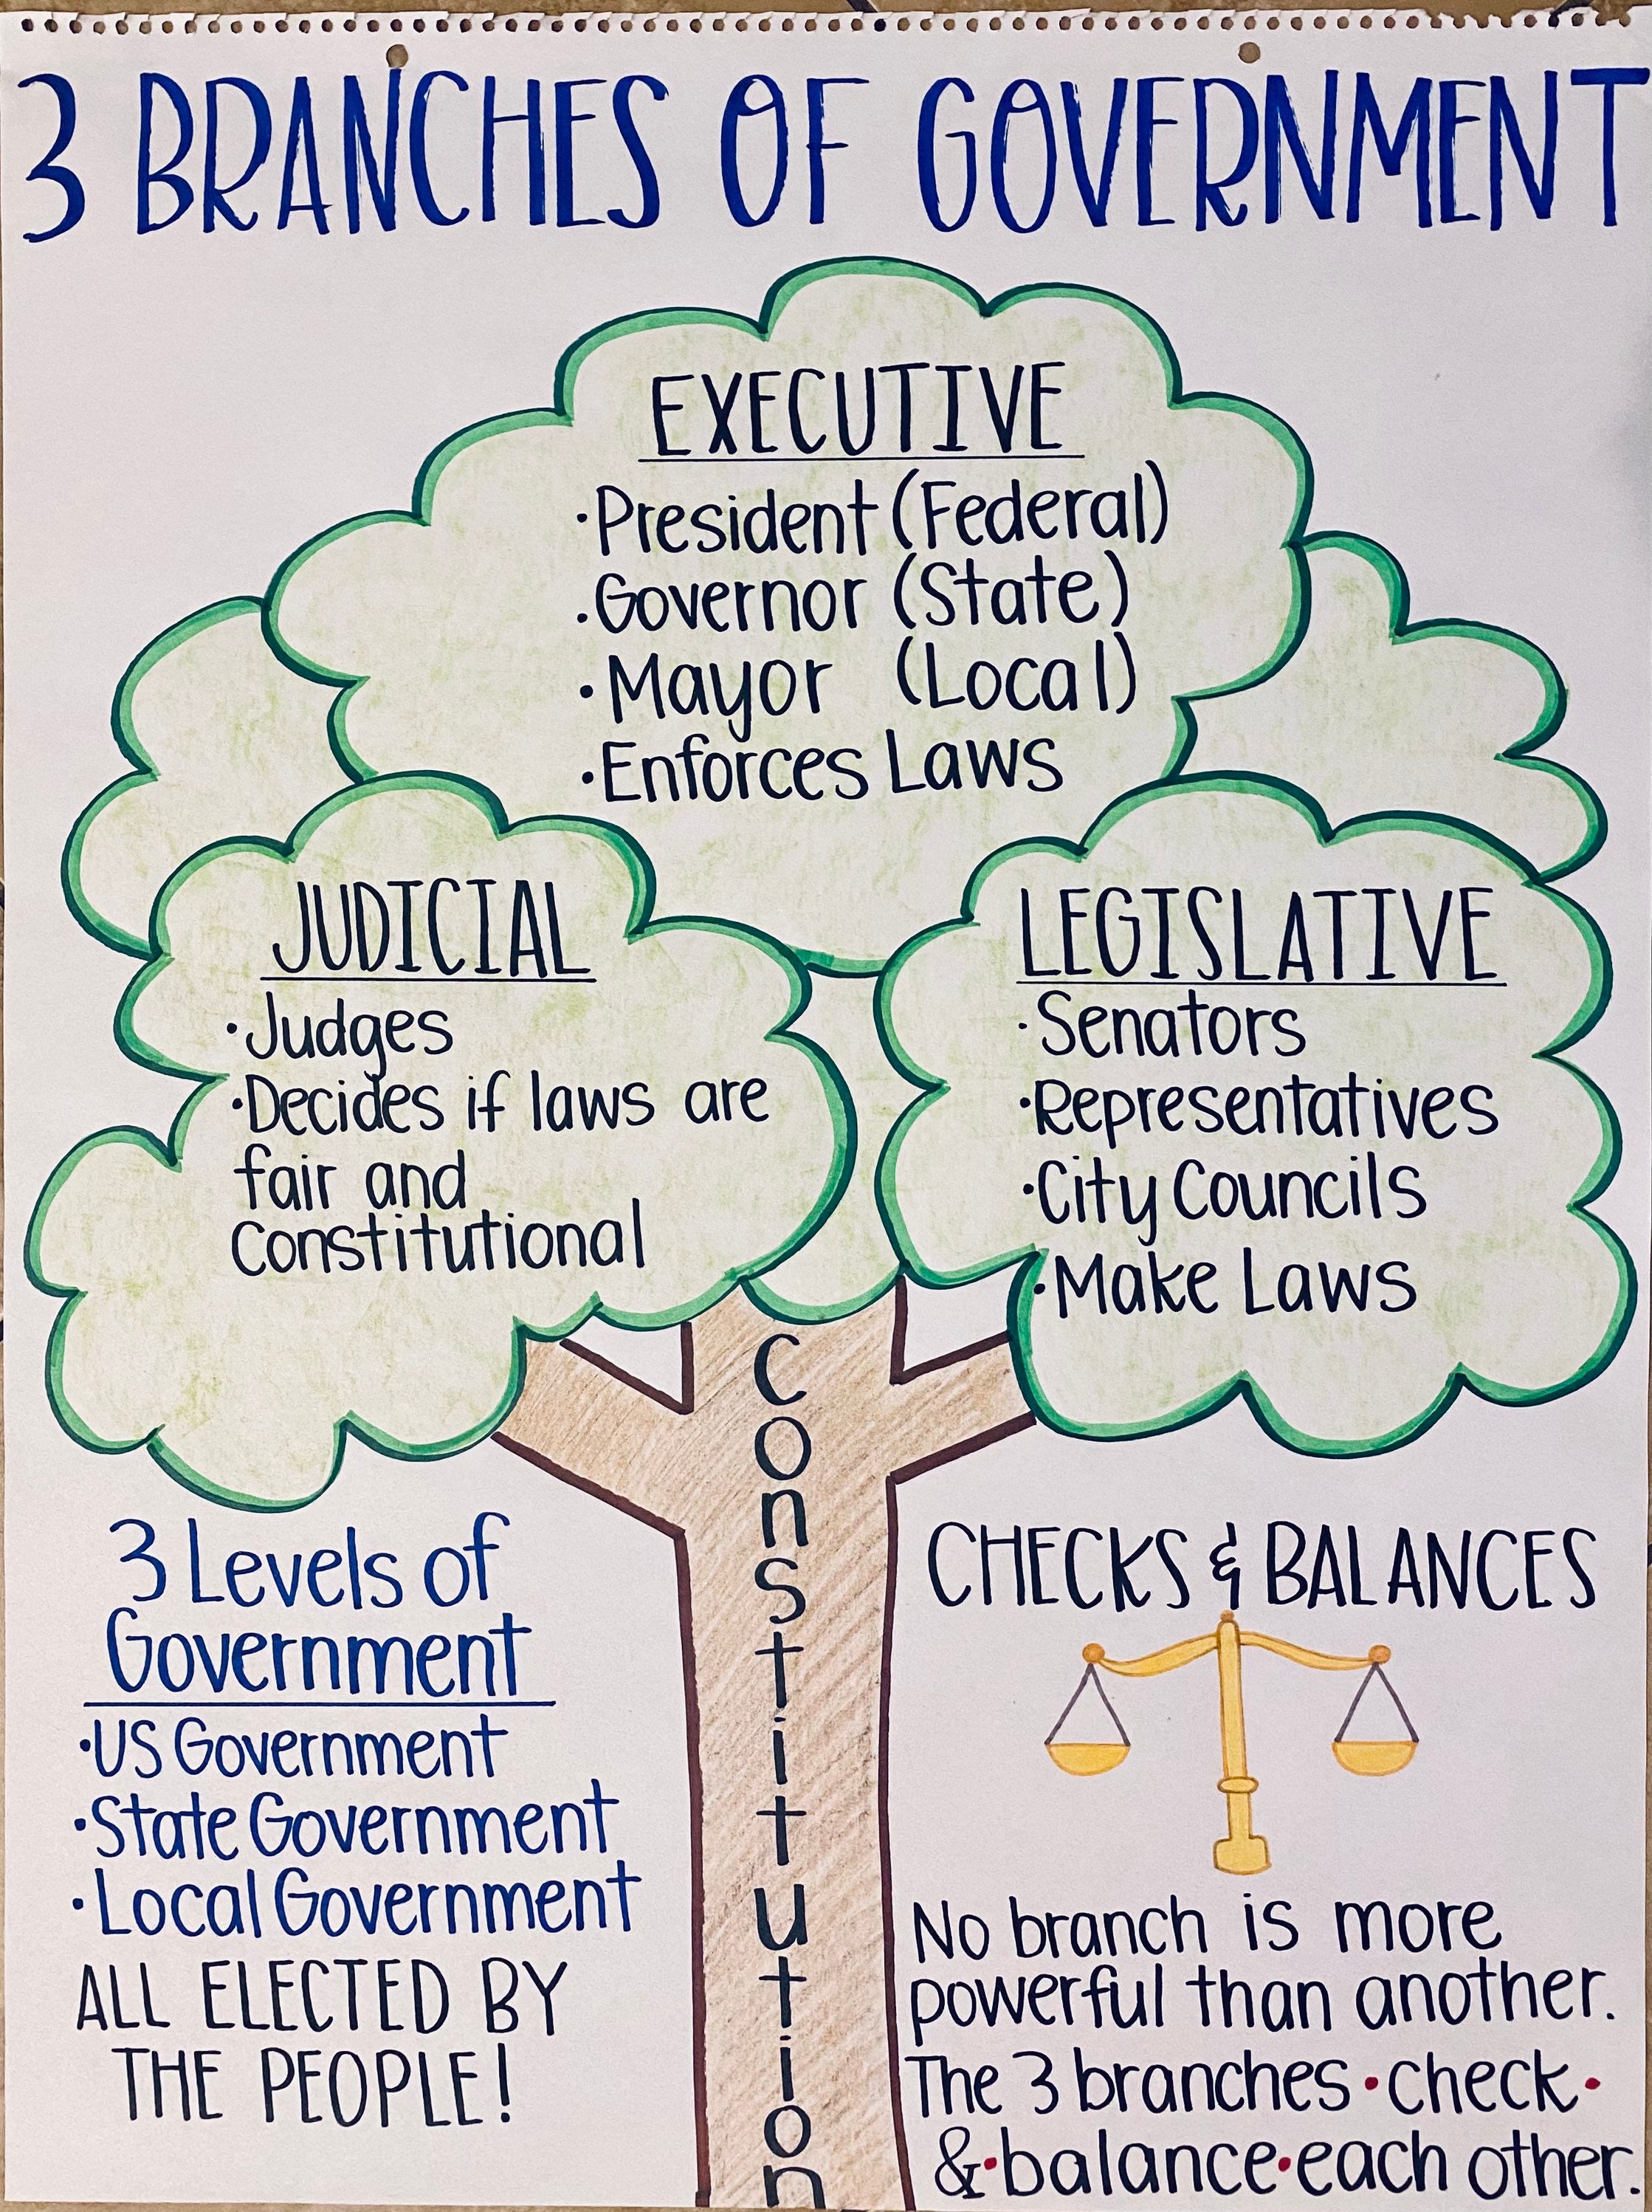 3 BRANCHES OF GOVERNMENT
EXECUTIVE
·President (Federal)
·Governor (State)
·Mayor (Local)
·Enforces Laws
JUDICIAL
·Judges
·Decides if laws are
fair and
Constitutional
LEGISLATIVE
·Senators
·Representatives
·City Councils
·Make Laws
Constitution
3 Levels of
Government
·US Government
·State Government
·Local Government
ALL ELECTED BY
THE PEOPLE!
CHECKS & BALANCES
No branch is more
powerful than another.
The 3 branches·check·
&·balance·each other.